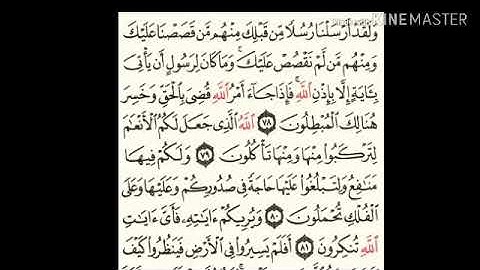 KINEMASTER
وَلَقَدْ أَرْسَلْنَا رُسُلًا مِّن قَبْلِكَ مِنْهُم مَّن قَصَصْنَا عَلَيْكَ
وَمِنْهُم مَّن لَّمْ نَقْصُصْ عَلَيْكَ ۗ وَمَا كَانَ لِرَسُولٍ أَن يَأْتِيَ
بِـَٔايَةٍ إِلَّا بِإِذْنِ ٱللَّهِ ۚ فَإِذَا جَآءَ أَمْرُ ٱللَّهِ قُضِيَ بِٱلْحَقِّ وَخَسِرَ
هُنَالِكَ ٱلْمُبْطِلُونَ ٧٨ ٱللَّهُ ٱلَّذِي جَعَلَ لَكُمُ ٱلْأَنْعَٰمَ
لِتَرْكَبُوا۟ مِنْهَا وَمِنْهَا تَأْكُلُونَ ٧٩ وَلَكُمْ فِيهَا
مَنَٰفِعُ وَلِتَبْلُغُوا۟ عَلَيْهَا حَاجَةً فِي صُدُورِكُمْ وَعَلَيْهَا وَعَلَى
ٱلْفُلْكِ تُحْمَلُونَ ٨٠ وَيُرِيكُمْ ءَايَٰتِهِۦ فَأَيَّ ءَايَٰتِ
ٱللَّهِ تُنكِرُونَ ٨١ أَفَلَمْ يَسِيرُوا۟ فِي ٱلْأَرْضِ فَيَنظُرُوا۟ كَيْفَ